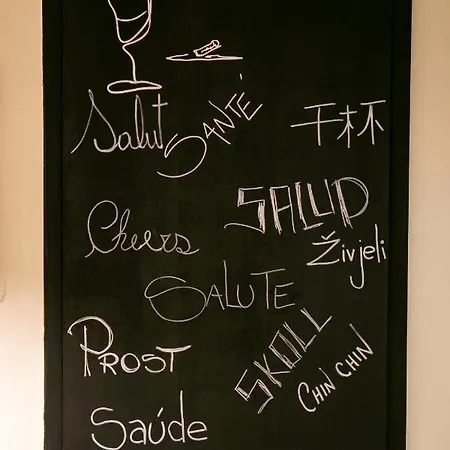 Salut
SANTÉ
干杯
SALUD
Cheers
Živjeli
SALUTE
PROST
SKOLL
CHIN CHIN
Saúde